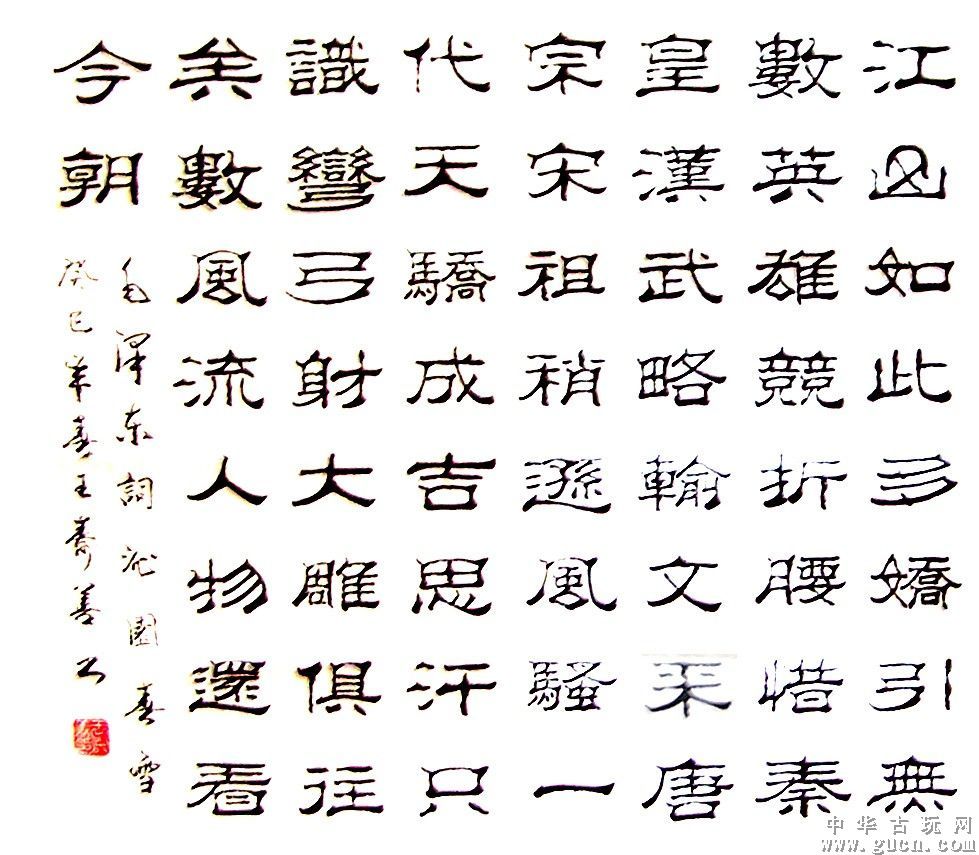 江山如此多嬌引無
數英雄競折腰惜秦
皇漢武略輸文采唐
宗宋祖稍遜風騷一
代天驕成吉思汗只
識彎弓射大雕俱往
矣數風流人物還看
今朝
毛泽东詞沁園春雪
癸巳年春王善书
中华古玩网
www.gucn.com